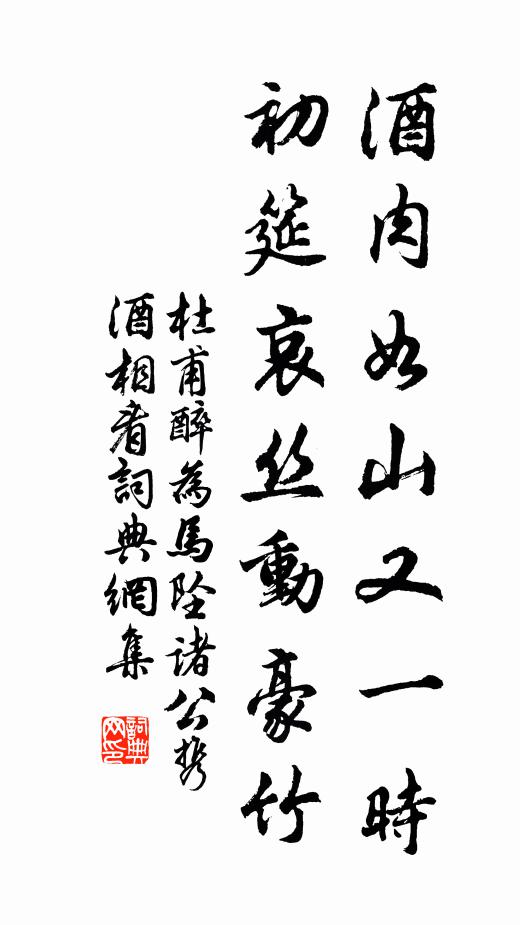 酒肉如山又一時
初筵哀丝動豪竹
杜甫醉為馬墜諸公攜
酒相看詞典網集
詞典
网印